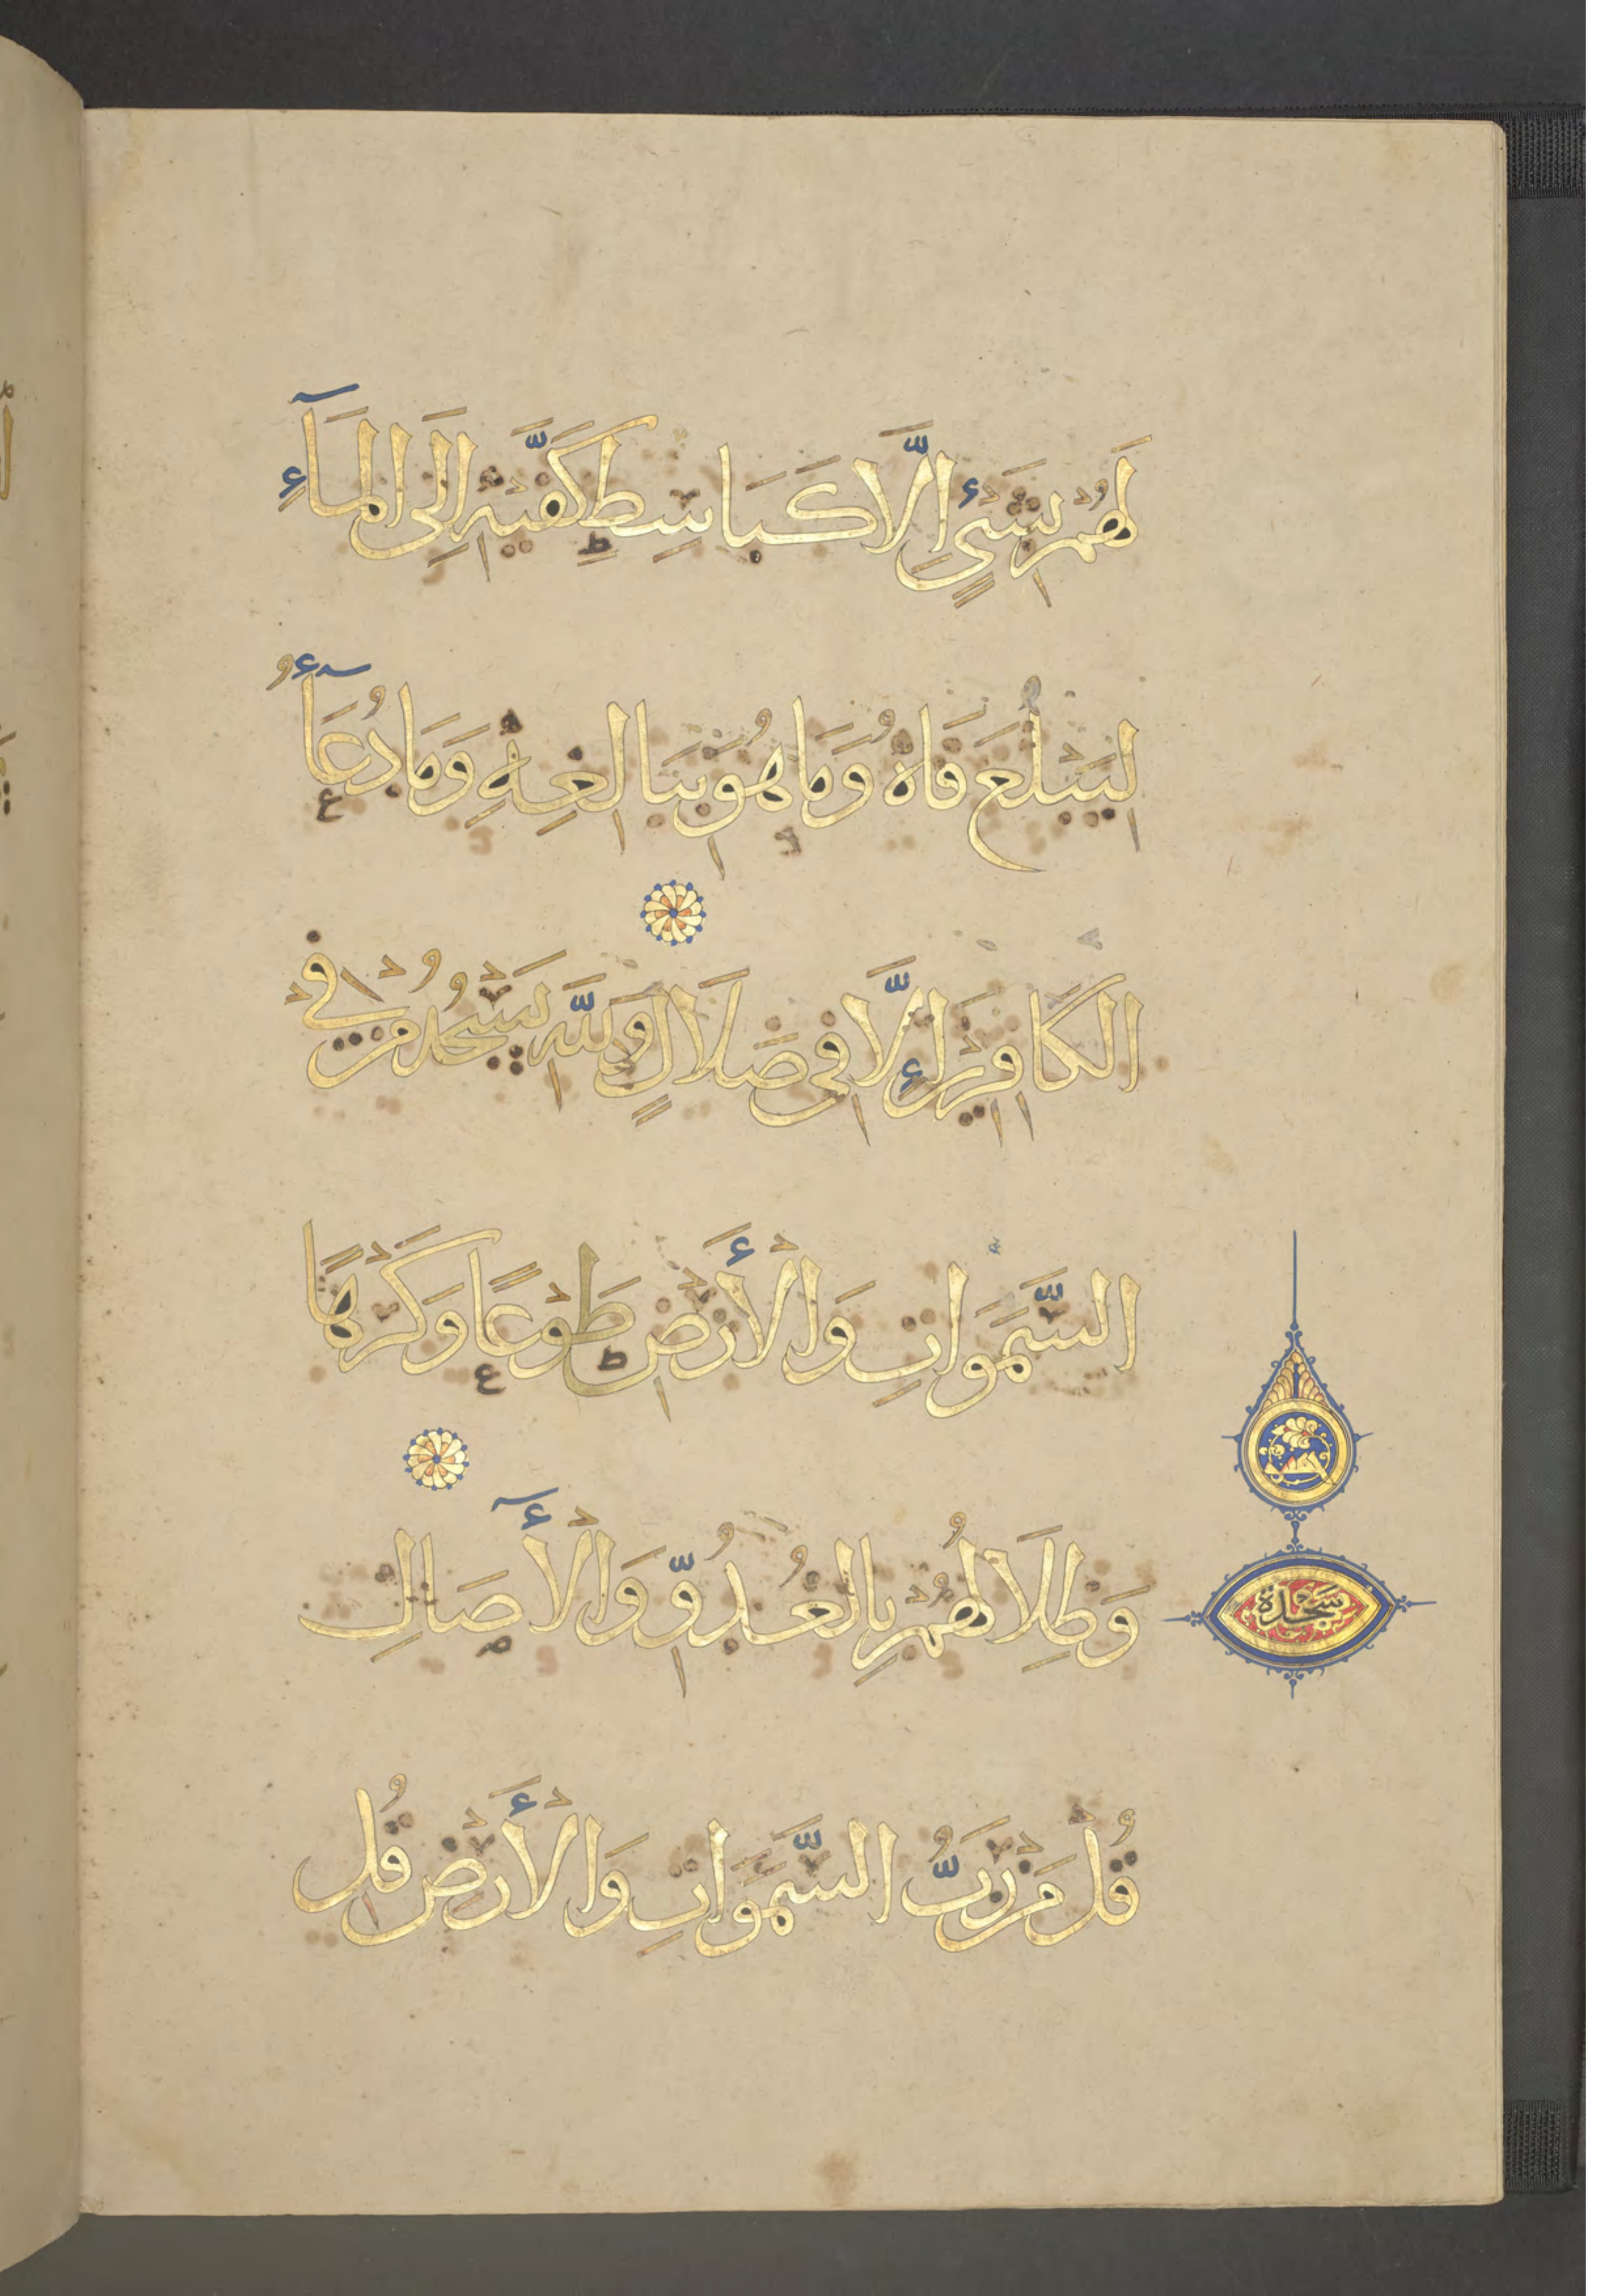 لَهُمْ بِشَيْءٍ إِلَّا كَبَاسِطِ كَفَّيْهِ إِلَى الْمَآءِ
لِيَبْلُغَ فَاهُ وَمَا هُوَ بِبَالِغِهِ وَمَا دُعَآءُ
الْكَافِرِينَ إِلَّا فِي ضَلَالٍ وَلِلَّهِ يَسْجُدُ مَنْ فِي
السَّمَوَاتِ وَالْأَرْضِ طَوْعًا وَكَرْهًا
وَظِلَالُهُمْ بِالْغُدُوِّ وَالْأَصَالِ
سَجْدَة
قُلْ مَنْ رَبُّ السَّمَوَاتِ وَالْأَرْضِ قُلِ